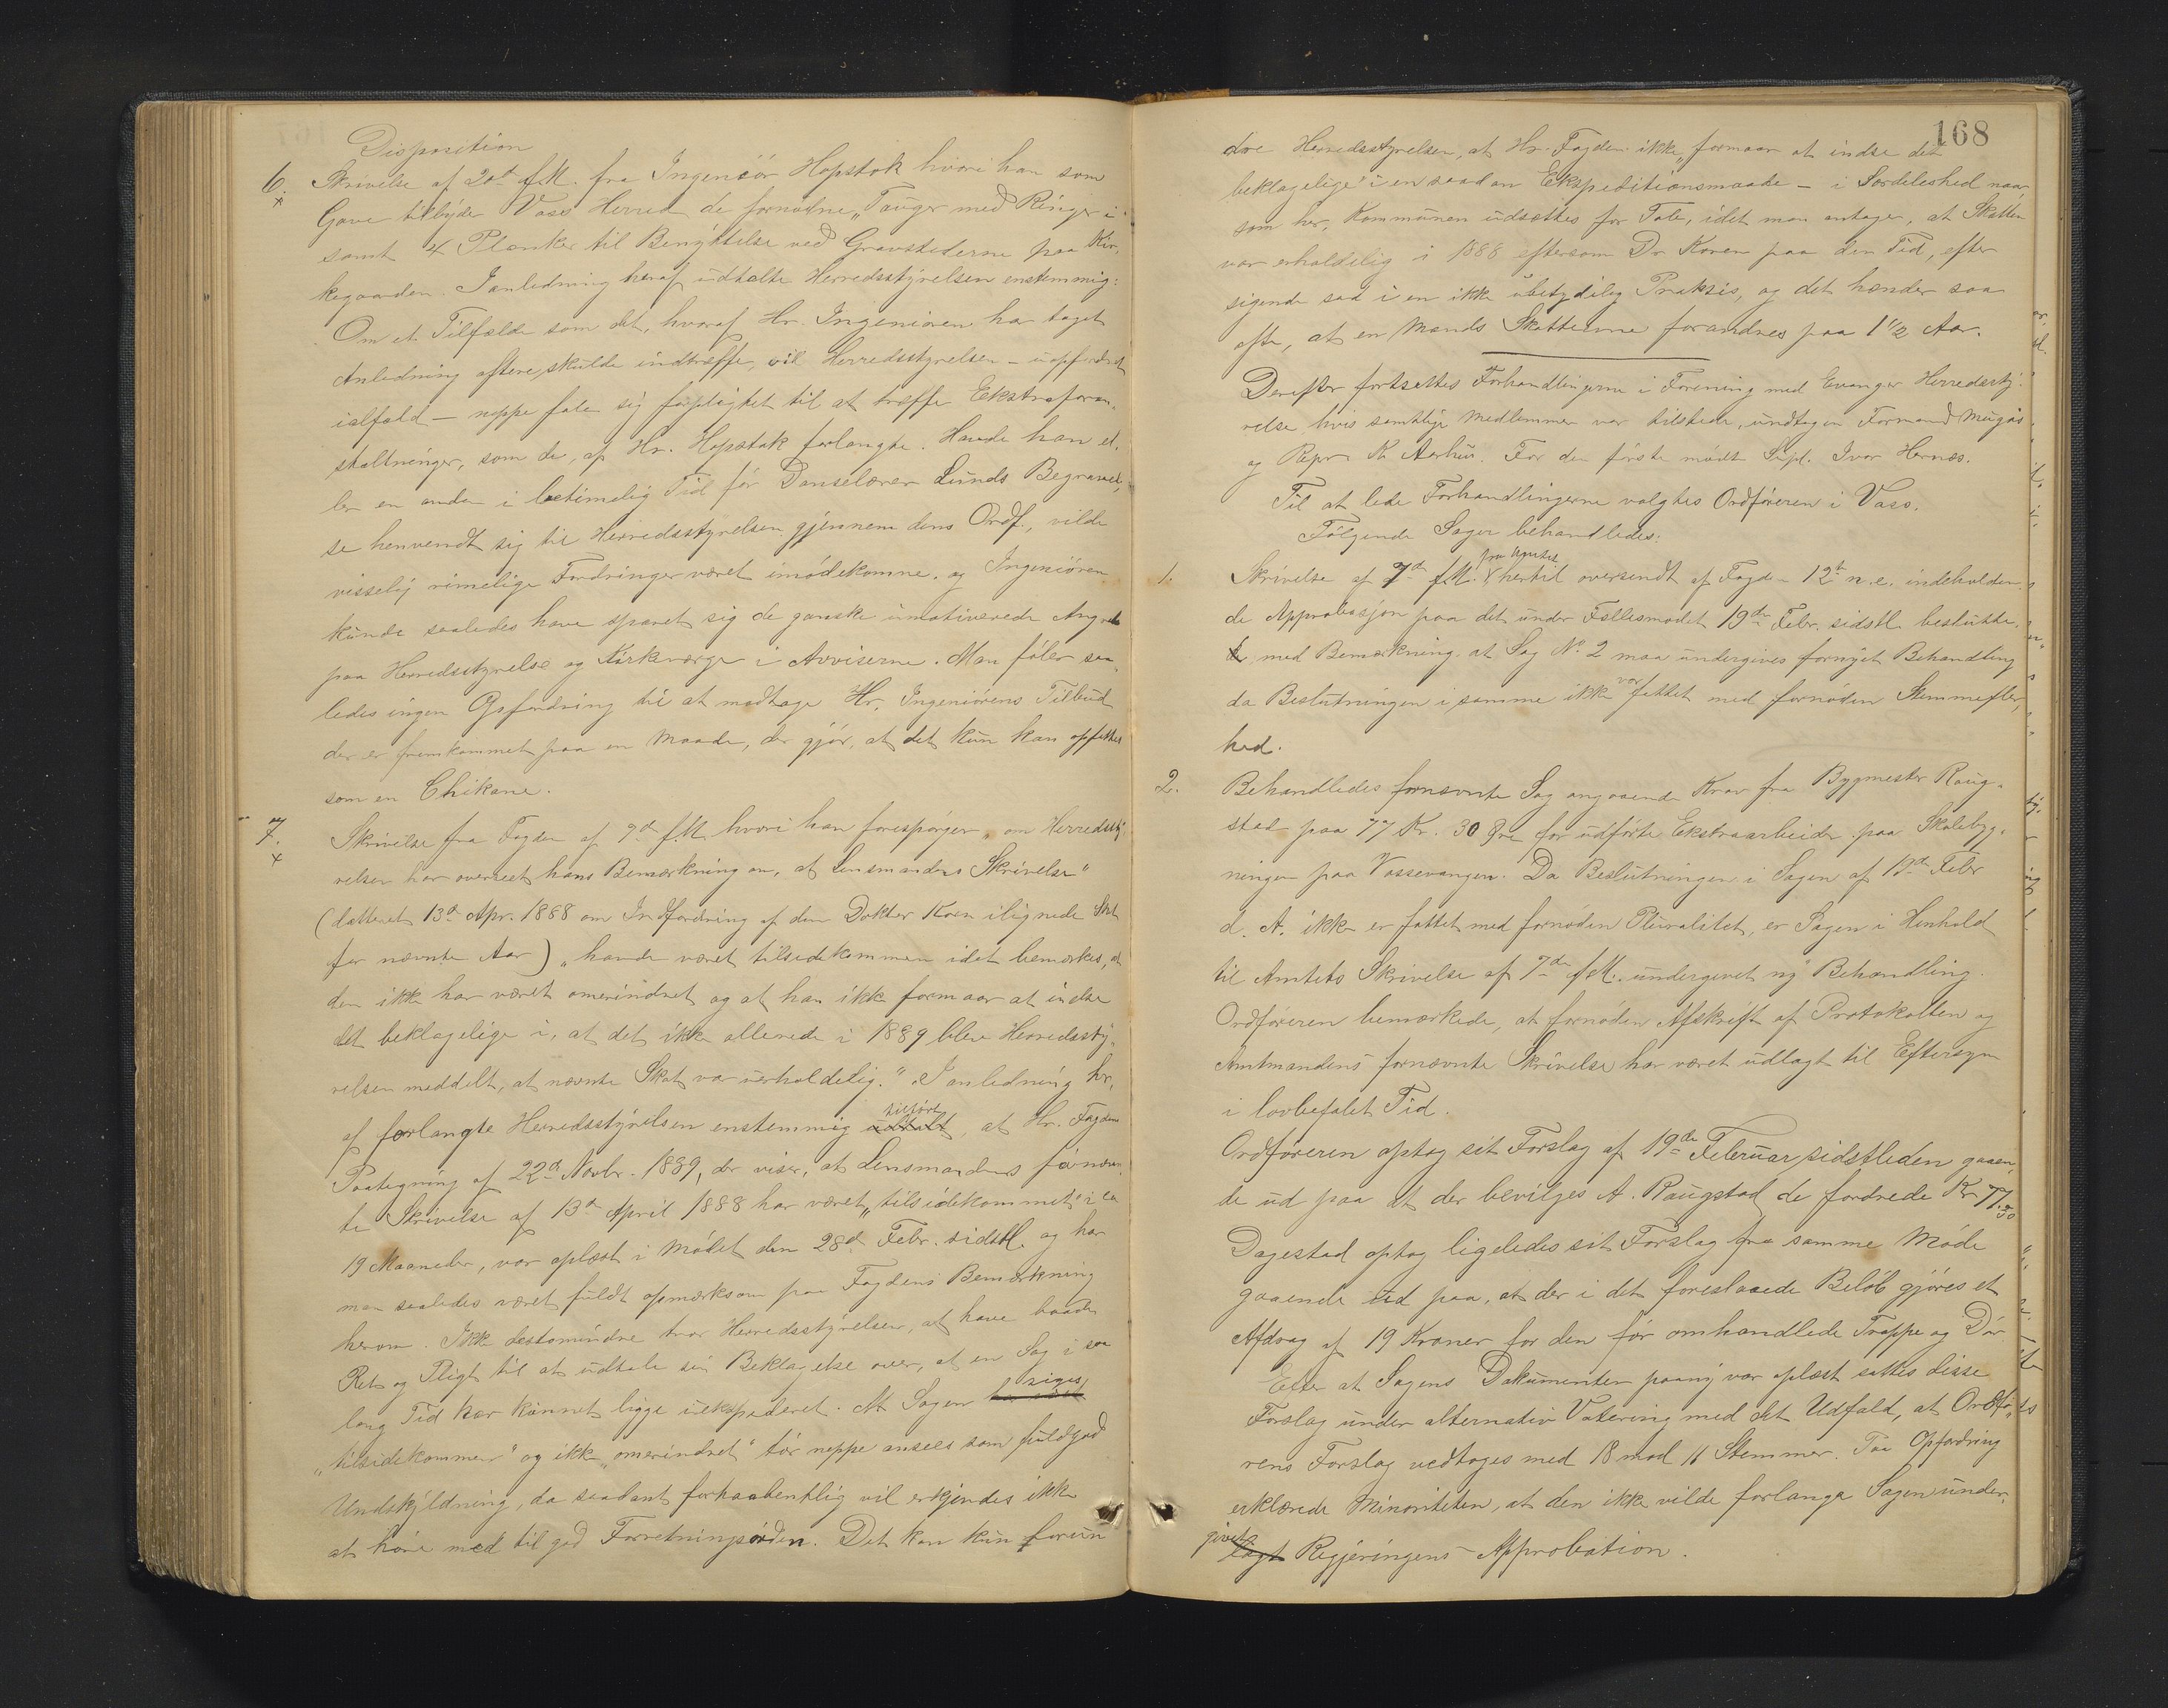 Disposition
6. Skrivelse af 20de f.M. fra Ingeniör Hopstok hvori han som
Gave tilbyder Voss Herred de fornødne „Tauger med Ringe i"
samt 4 Planker til Benyttelse ved Gravstederne paa Kir-
kegaarden. I anledning heraf udtalte Herredsstyrelsen enstemmig:
Om et Tilfælde som det, hvoraf Hr. Ingeniören har taget
Anledning oftere skulde indtræffe, vil Herredsstyrelsen – uopfordret
ialfald – neppe føle sig forpligtet til at træffe Ekstraforan-
staltninger, som de, af Hr. Hopstok forlangte. Havde han el-
ler en anden i betimelig Tid før Danselærer Lunds Begravel-
se henvendt sig til Herredsstyrelsen gjennem dens Ordf., vilde
visselig rimelige Fordringer været imödekomne, og Ingeniören
kunde saaledes have sparet sig de ganske umotiverede Angreb
paa Herredsstyrelse og Kirkeværge i Aviserne. Man föler saa-
ledes ingen Opfordring til at modtage Hr. Ingeniörens Tilbud
der er fremkommet paa en Maade, der gjör, at det kun kan opfattes
som en Chikane.
7. Skrivelse fra Fogden af 9de f.M. hvori han forespörger „om Herredssty-
relsen har overseet hans Bemærkning om, at Lensmandens Skrivelse"
(datteret 13de Apr. 1888 om Indfordring af den Doktor Koren ilignede Skat
for nævnte Aar) „havde været tilsidekommen idet bemærkes, at
den ikke har været omerindret og at han ikke formaar at indse
det beklagelige i, at det ikke allerede i 1889 blev Herredssty-
relsen meddelt, at nævnte Skat var uerholdelig." I anledning her-
af forlangte Herredsstyrelsen enstemmig tilfört, at Hr. Fogdens
Paategning af 22de Novbr. 1889, der viser, at Lensmandens fornævn-
te Skrivelse af 13de April 1888 har været „tilsidekommet" i ca
19 Maaneder, var oplæst i Mödet den 28de Febr. sidstl. og har
man saaledes været fuldt opmærksom paa Fogdens Bemærkning
herom. Ikke destomindre tror Herredsstyrelsen, at have baade
Ret og Pligt til at udtale sin Beklagelse over, at en Sag i saa
lang Tid har kunnet ligge uekspederet. At Sagen siges
„tilsidekommen" og ikke „omerindret" tör neppe ansees som fuldgod
Undskyldning, da saadant forhaabentlig vil erkjendes ikke
at höre med til god Forretningsorden. Det kan kun forun-
168
dre Herredsstyrelsen, at Hr. Fogden ikke „formaar at indse det
beklagelige" i en saadan Ekspeditionsmaade – i Særdeleshed naar,
som her, Kommunen udsættes for Tab, idet man antager, at Skatten
var erholdelig i 1888 eftersom Dr Koren paa den Tid, efter
sigende sad i en ikke ubetydelig Praksis, og det hænder saa
ofte, at en Mands Skatteevne forandres paa 1 1/2 Aar.
Derefter fortsattes Forhandlingerne i Forening med Evanger Herredssty-
relse hvis samtlige Medlemmer var tilstede, undtagen Formand Mugaas
og Repr. K. Aarhus. For den förste mödte Supl. Ivar Hernæs.
Til at lede Forhandlingerne valgtes Ordföreren i Voss.
Fölgende Sager behandledes:
1. Skrivelse af 7de f.M. fra Amtet hertil oversendt af Fogden 12te n.e. indeholden-
de Approbasjon paa det under Fællesmödet 19de Febr. sidstl. beslutte-
de med Bemærkning at Sag No. 2 maa undergives fornyet Behandling
da Beslutningen i samme ikke var fattet med fornöden Stemmefler-
hed.
2. Behandledes fornævnte Sag angaaende Krav fra Bygmester Raug-
stad paa 77 Kr. 30 Öre for udförte Ekstraarbeider paa Skolebyg-
ningen paa Vossevangen. Da Beslutningen i Sagen af 19de Febr
d. A. ikke er fattet med fornöden Pluralitet, er Sagen i Henhold
til Amtets Skrivelse af 7de f.M. undergivet ny Behandling
Ordföreren bemærkede, at fornöden Afskrift af Protokollen og
Amtmandens fornævnte Skrivelse har været udlagt til Eftersyn
i lovbefalet Tid.
Ordföreren optog sit Forslag af 19de Februar sidstleden gaaen-
de ud paa at der bevilges A. Raugstad de fordrede Kr 77.30
Dagestad optog ligeledes sit Forslag fra samme Möde
gaaende ud paa, at der i det foreslaaede Belöb gjöres et
Afdrag af 19 Kroner for den för omhandlede Trappe og Dör
Efter at Sagens Dokumenter paany var oplæst sattes disse
Forslag under alternativ Votering med det Udfald, at Ordfö-
rerens Forslag vedtoges med 18 mod 11 Stemmer. Paa Opfordring
erklærede Minoriteten, at den ikke vilde forlange Sagen under-
givet Regjeringens Approbation.